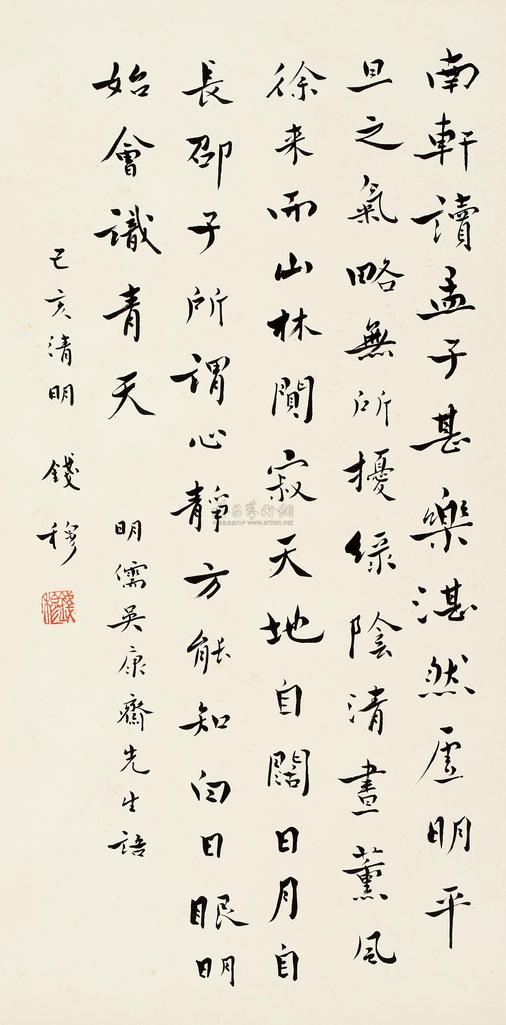 南軒讀孟子甚樂湛然虛明平
旦之氣略無所擾綠陰清晝薰風
徐来而山林閴寂天地自闊日月自
長邵子所謂心靜方能知白日眼明
始會識青天
明儒吳康齋先生語
己亥清明 錢穆
www.artron.net